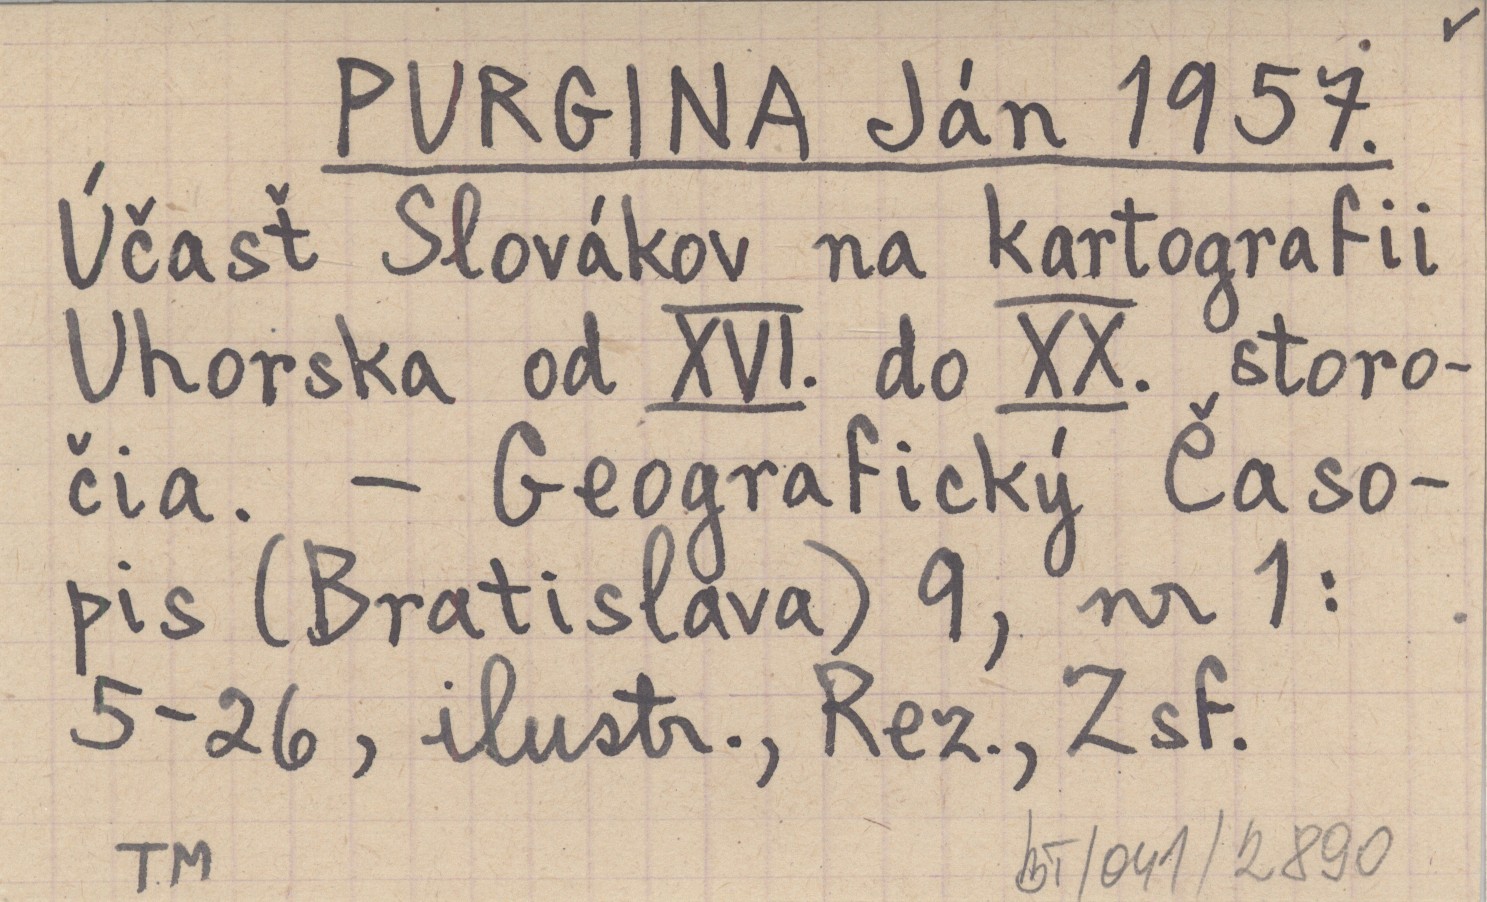 PURGINA Ján 1957.
Účasť Slovákov na kartografii
Uhorska od XVI. do XX. storo-
čia. - Geografický Časo-
pis (Bratislava) 9, nr 1:
5-26, ilustr., Rez., Zsf.
TM
bT/041/2890